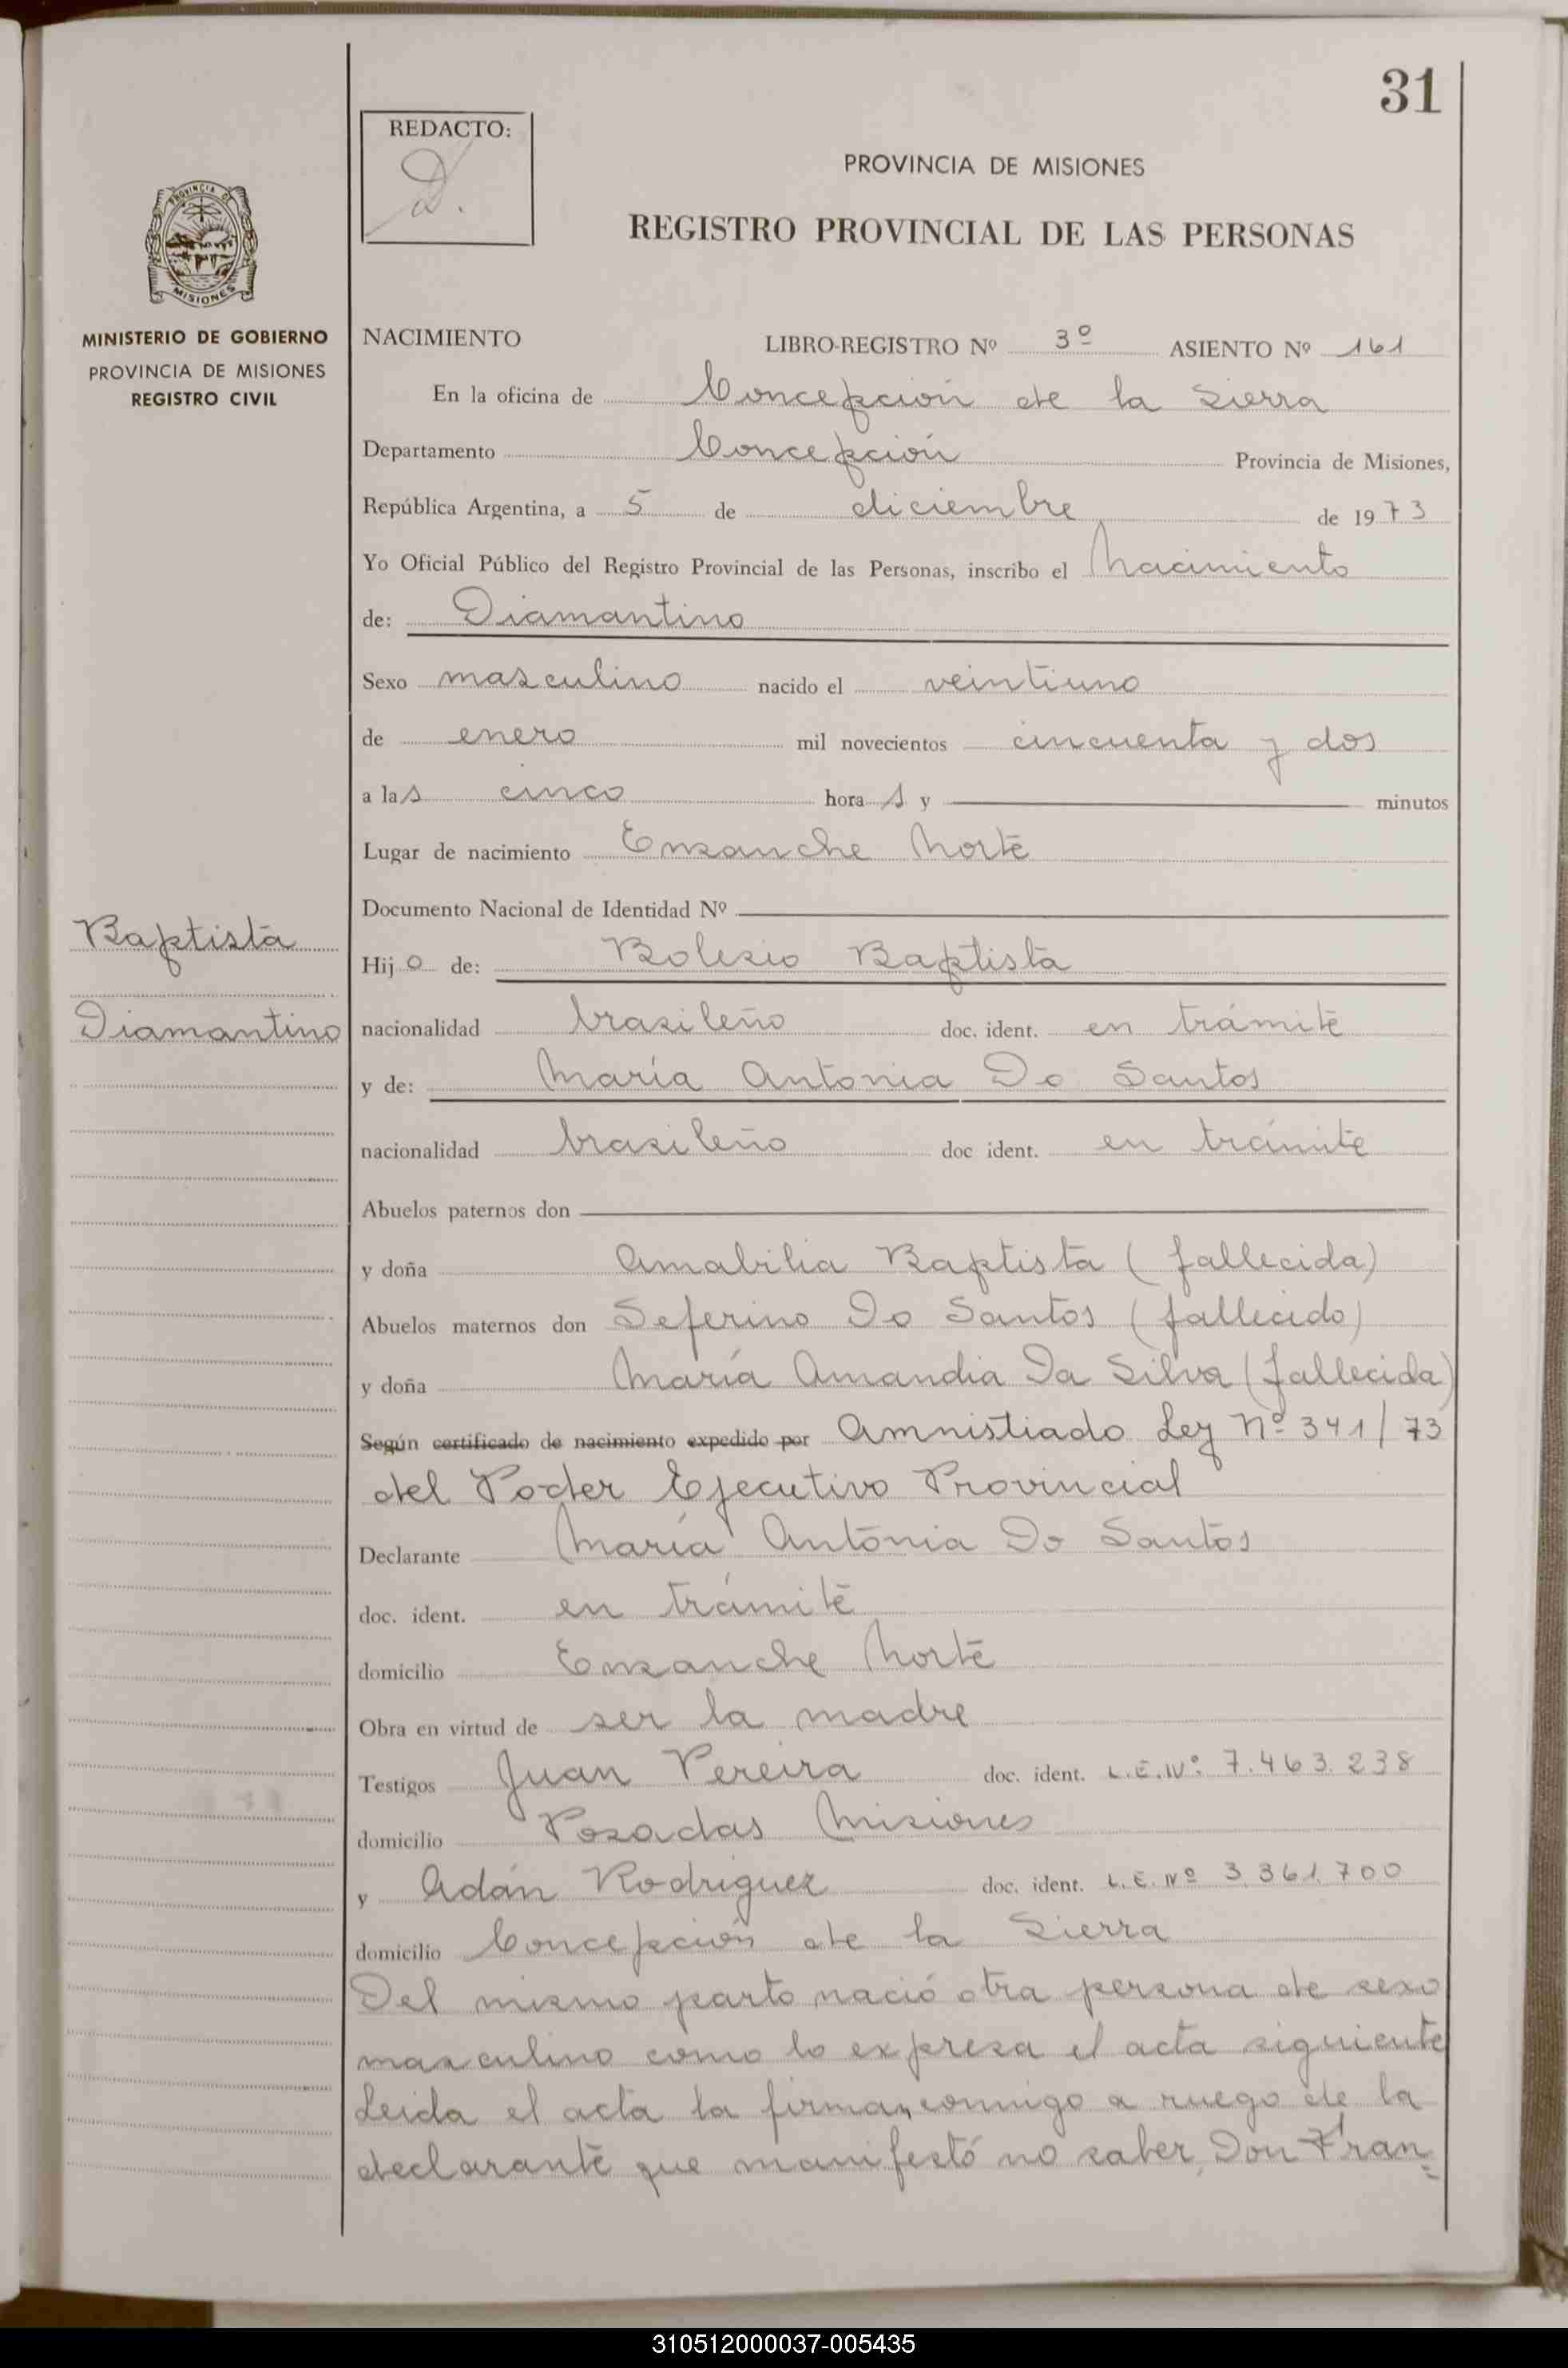 31
REDACTO:
D.
PROVINCIA DE MISIONES
REGISTRO PROVINCIAL DE LAS PERSONAS
PROVINCIA DE
MISIONES
MINISTERIO DE GOBIERNO
PROVINCIA DE MISIONES
REGISTRO CIVIL
NACIMIENTO LIBRO-REGISTRO Nº 3º ASIENTO Nº 161
En la oficina de Concepción de la Sierra
Departamento Concepción Provincia de Misiones,
República Argentina, a 5 de diciembre de 1973
Yo Oficial Público del Registro Provincial de las Personas, inscribo el Nacimiento
de: Diamantino
Sexo masculino nacido el veintiuno
de enero mil novecientos cincuenta y dos
a las cinco horas y minutos
Lugar de nacimiento Ensanche Norte
Documento Nacional de Identidad Nº
Baptista
Hijo de: Bolesio Baptista
Diamantino
nacionalidad brasileño doc. ident. en trámite
y de: María Antonia Do Santos
nacionalidad brasileño doc ident. en trámite
Abuelos paternos don
y doña Amabilia Baptista (fallecida)
Abuelos maternos don Seferino Do Santos (fallecido)
y doña María Amandia Da Silva (fallecida)
Según certificado de nacimiento expedido por Amnistiado Ley Nº 341/73
del Poder Ejecutivo Provincial
Declarante María Antonia Do Santos
doc. ident. en trámite
domicilio Ensanche Norte
Obra en virtud de ser la madre
Testigos Juan Pereira doc. ident. L.E.Nº: 7.463.238
domicilio Posadas Misiones
y Adán Rodriguez doc. ident. L.E. Nº 3.361.700
domicilio Concepción de la Sierra
Del mismo parto nació otra persona de sexo
masculino como lo expresa el acta siguiente
Leida el acta la firman conmigo a ruego de la
declarante que manifestó no saber, Don Fran=
310512000037-005435